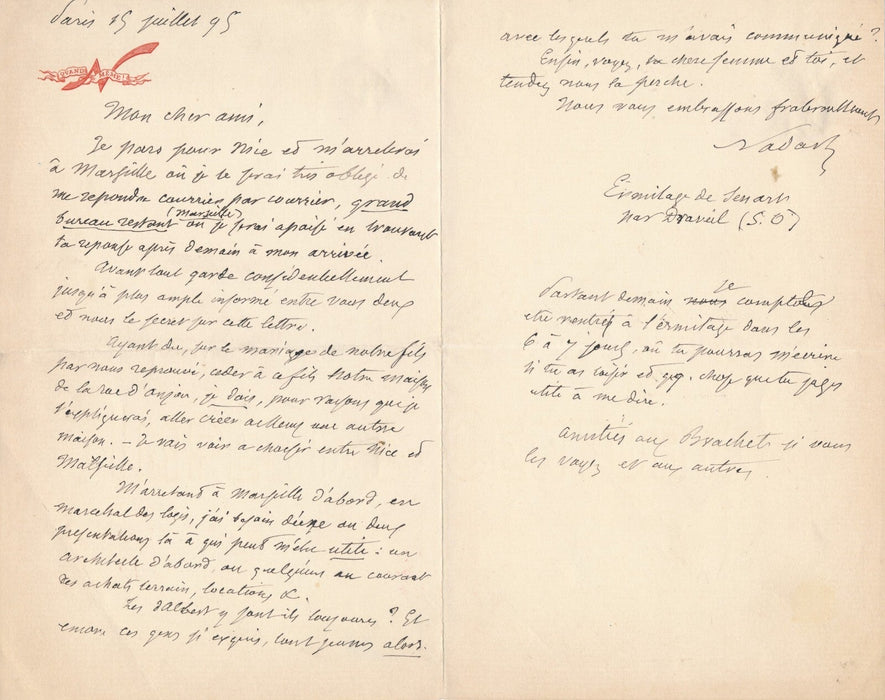 Paris 15 juillet 95
QUAND MÊME!
Mon cher ami,
Je pars pour Nice et m'arrêterai
à Marseille où je te serai très obligé de
me répondre courrier par courrier, grand
bureau restant (Marseille) où je serai apaisé en trouvant
ta réponse après demain à mon arrivée.
Avant tout garde confidentiellement
jusqu'à plus ample informé entre vous deux
et nous le secret sur cette lettre.
Ayant du, sur le mariage de notre fils
par nous reprouvé, céder à ce fils notre maison
de la rue d'Anjou, je dois, pour raisons que je
t'expliquerai, aller créer ailleurs une autre
maison. – Je vais voir à choisir entre Nice et
Marseille.
M'arrêtant à Marseille d'abord, en
maréchal des logis, j'ai besoin d'une ou deux
présentations là à qui peut m'être utile : un
architecte d'abord, ou quelqu'un au courant
des achats terrain, locations &.
Les d'Albert y sont-ils toujours ? Et
encore ces gens si exquis, tout jeunes alors.
avec lesquels tu m'avais communiqué ?
Enfin, voyez, ta chère femme et toi, et
tendez nous la perche.
Nous vous embrassons fraternellement
Nadar
Ermitage de Senart
par Draveil (S.O)
Partant demain nous je comptons
être rentré à l'ermitage dans les
6 à 7 jours, où tu pourras m'écrire
si tu as loisir et qq. chose que tu juges
utile à me dire.
Amitiés aux Brachet si vous
les voyez et aux autres.